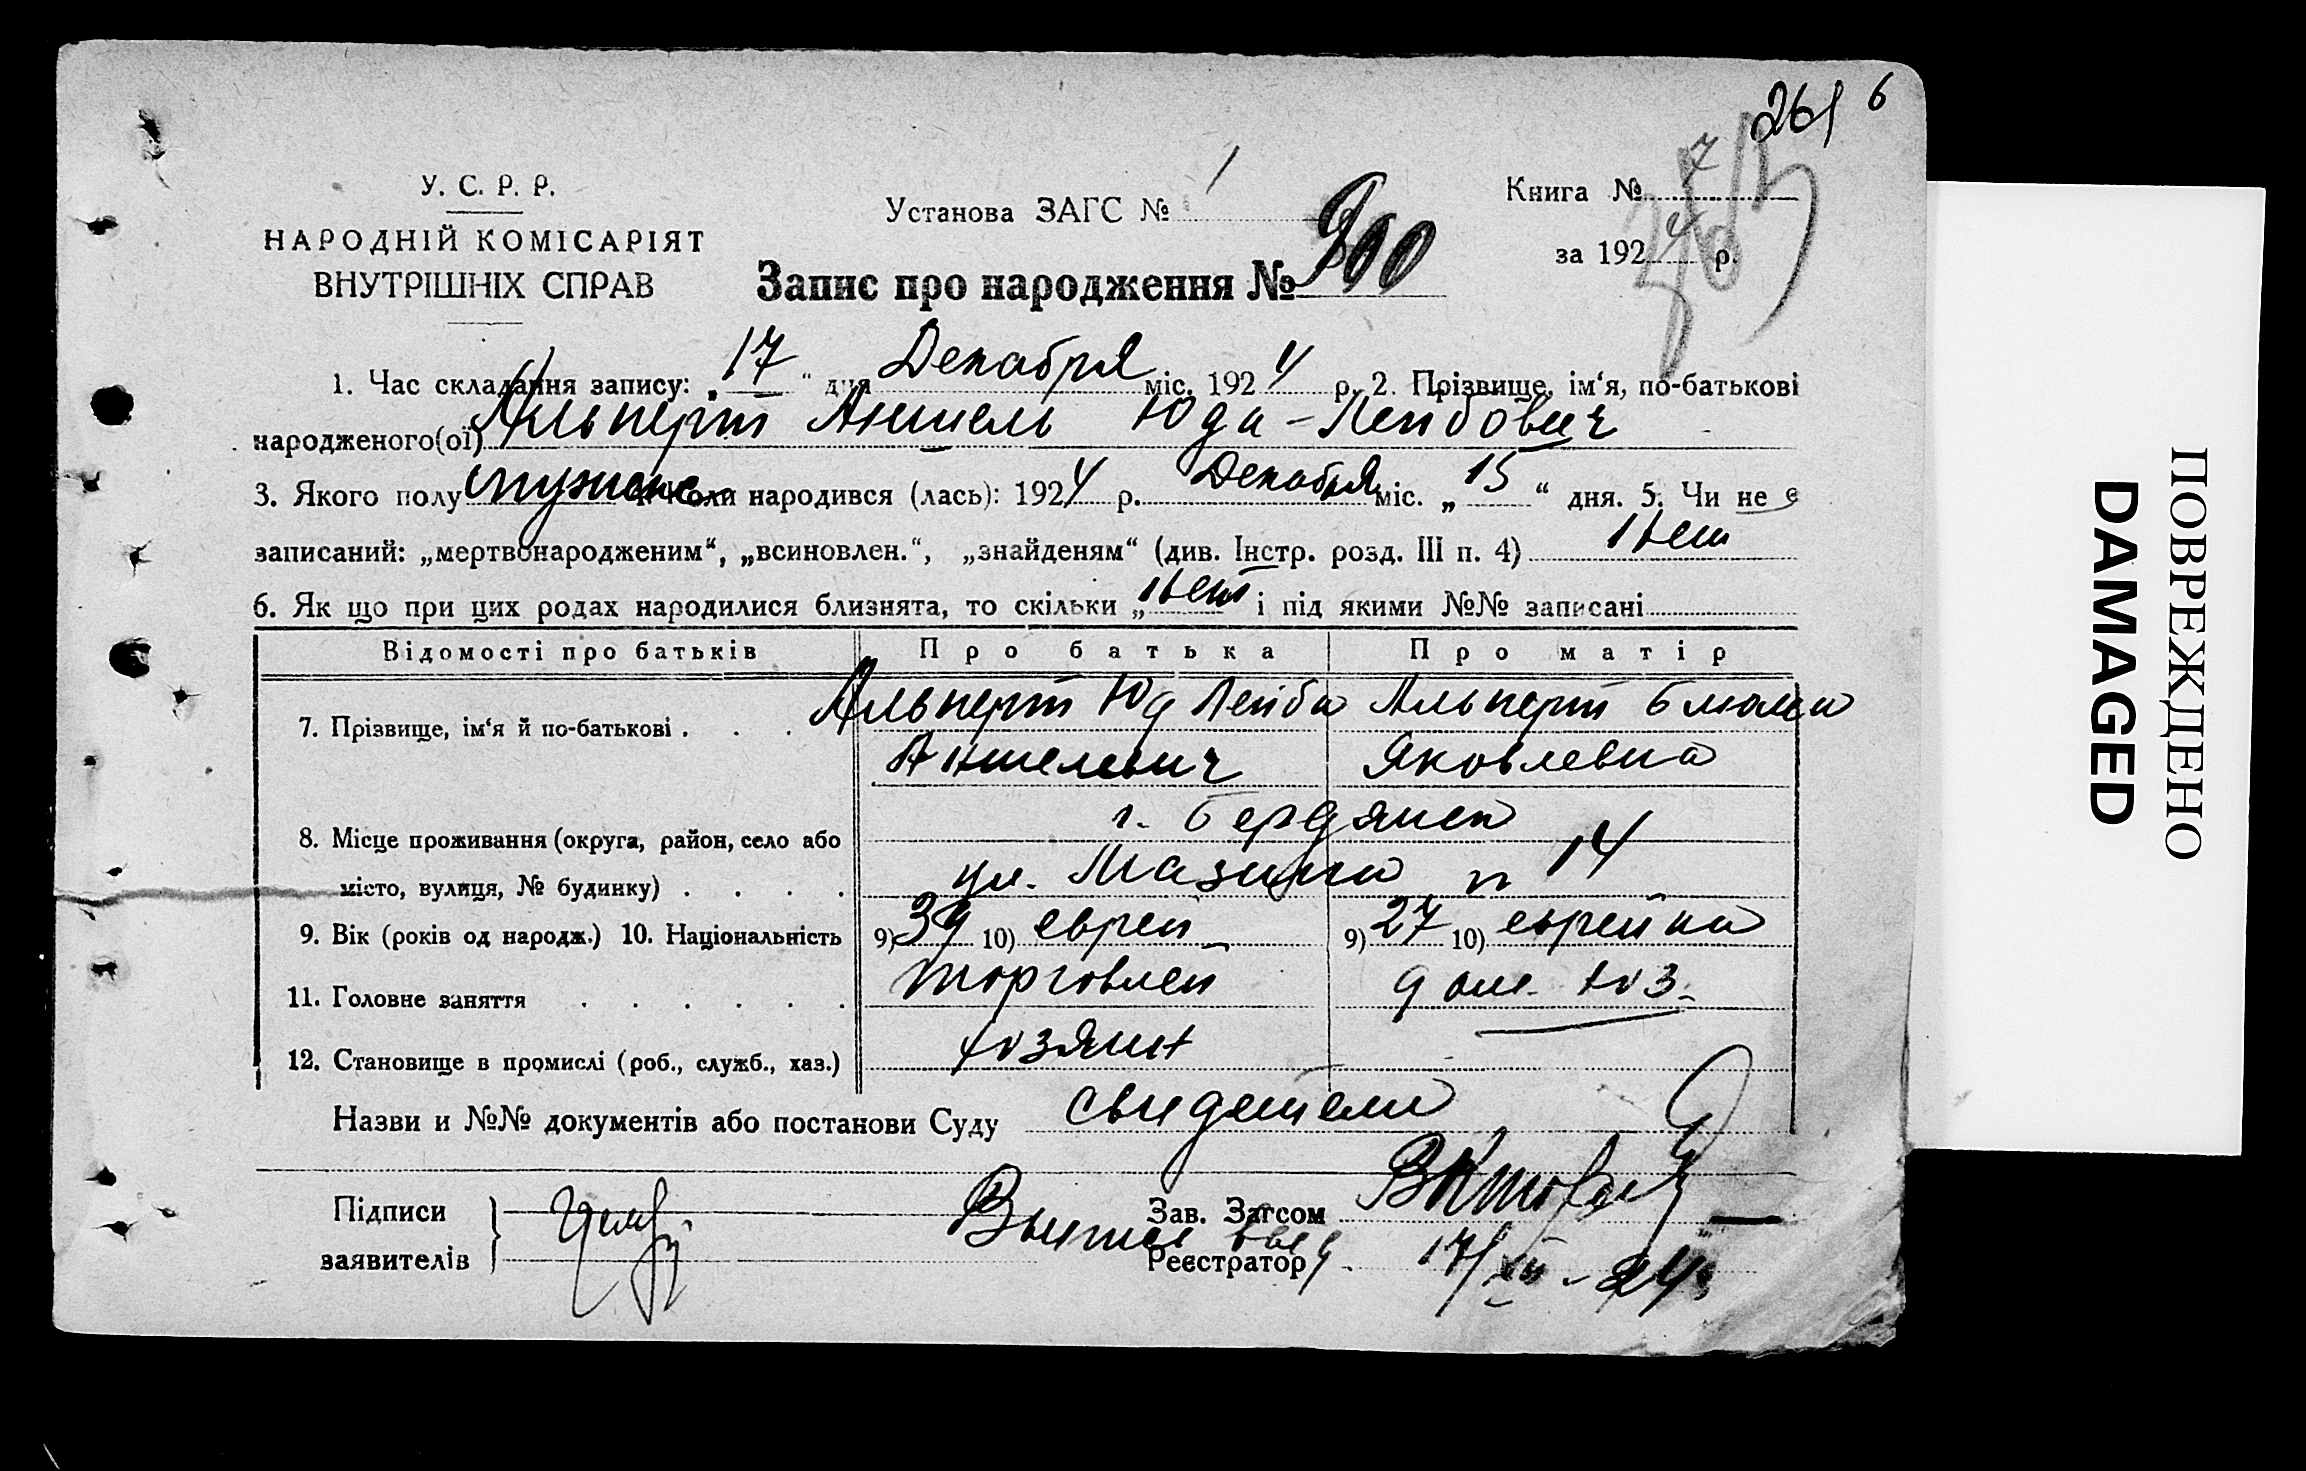 261 6
У. С. Р. Р.
НАРОДНІЙ КОМІСАРІЯТ
ВНУТРІШНІХ СПРАВ
Установа ЗАГС № 1
Книга № 7
за 1924 р.
Запис про народження № 900
1. Час складання запису: „17“ дня Декабря міс. 1924 р. 2. Прізвище, ім‘я, по-батькові
народженого(ої) Альперт Аншель Юда-Лейбович
3. Якого полу мужск 4. Коли народився (лась): 1924 р. Декабря міс. „15“ дня. 5. Чи не є
записаний: „мертвонародженим“, „всиновлен.“, „знайденям“ (див. Інстр. розд. III п. 4) Нет
6. Як що при цих родах народилися близнята, то скільки „Нет і під якими №№ записані
Відомості про батьків Про батька Про матір
7. Прізвище, ім‘я й по-батькові . . . Альперт Юд Лейба Альперт Блюма
Аншелевич Яковлевна
8. Місце проживання (округа, район, село або г. Бердянск
місто, вулиця, № будинку) . . . . ул. Мазина н 14
9. Вік (років од народж.) 10. Національність 9) 39 10) еврей 9) 27 10) еврейка
11. Головне заняття . . . . . . торговлей дом. хоз.
12. Становище в промислі (роб., служб., хаз.) хозяин
Назви и №№ документів або постанови Суду свидетели
Підписи заявителів
Зав. Загсом
Реєстратор
17/XII - 24
ПОВРЕЖДЕНО
DAMAGED